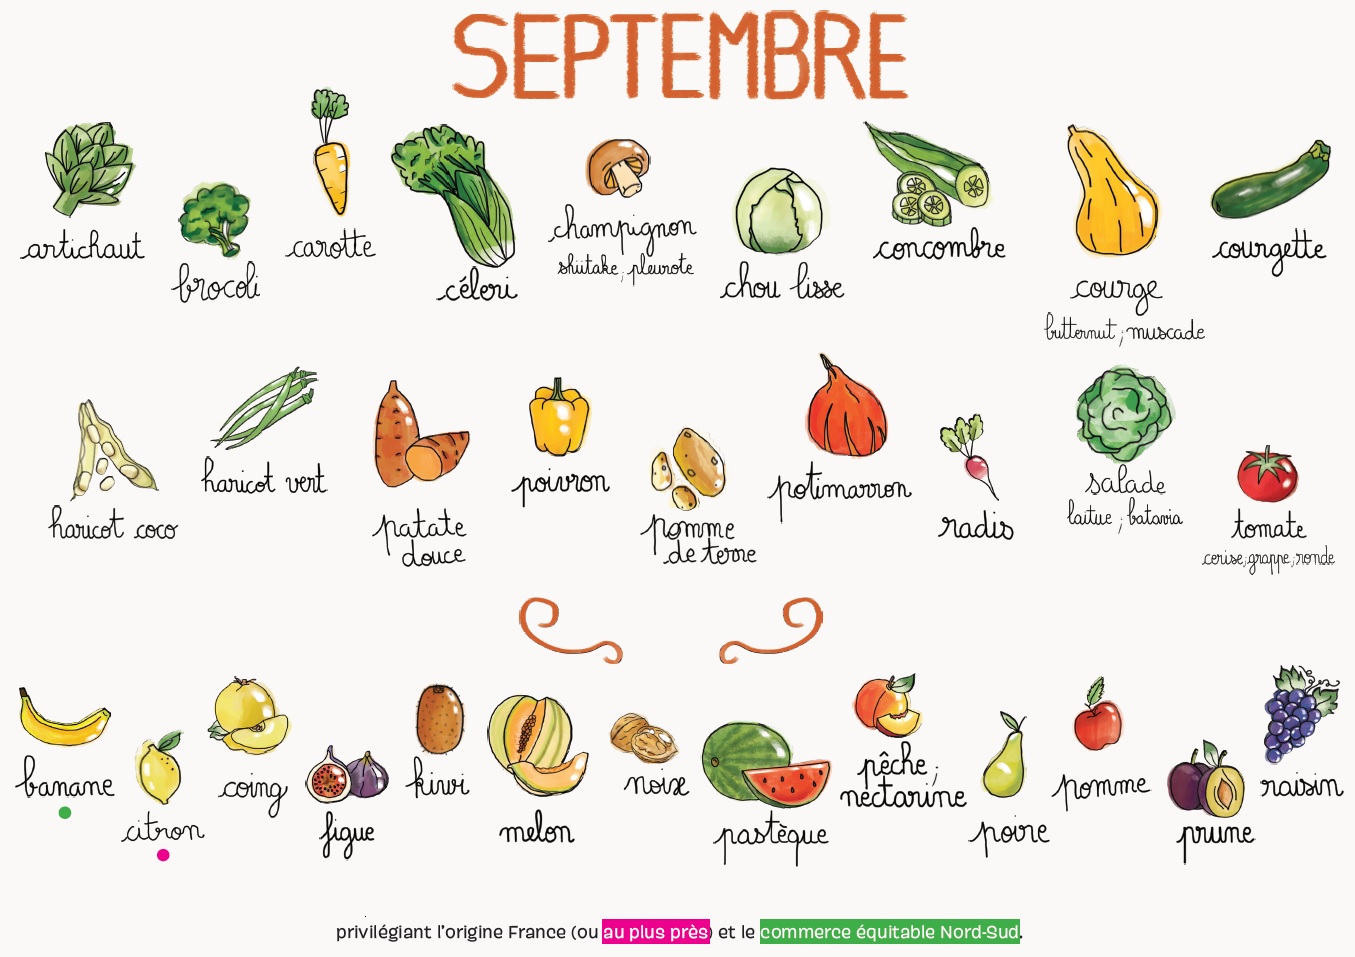 SEPTEMBRE
artichaut
brocoli
carotte
céleri
champignon
shiitake ; pleurote
chou lisse
concombre
courge
butternut ; muscade
courgette
haricot coco
haricot vert
patate
douce
poivron
pomme
de terre
potimarron
radis
salade
laitue ; batavia
tomate
cerise ; grappe ; ronde
banane
citron
coing
figue
kiwi
melon
noix
pastèque
pêche ;
nectarine
poire
pomme
prune
raisin
privilégiant l'origine France (ou au plus près) et le commerce équitable Nord-Sud.